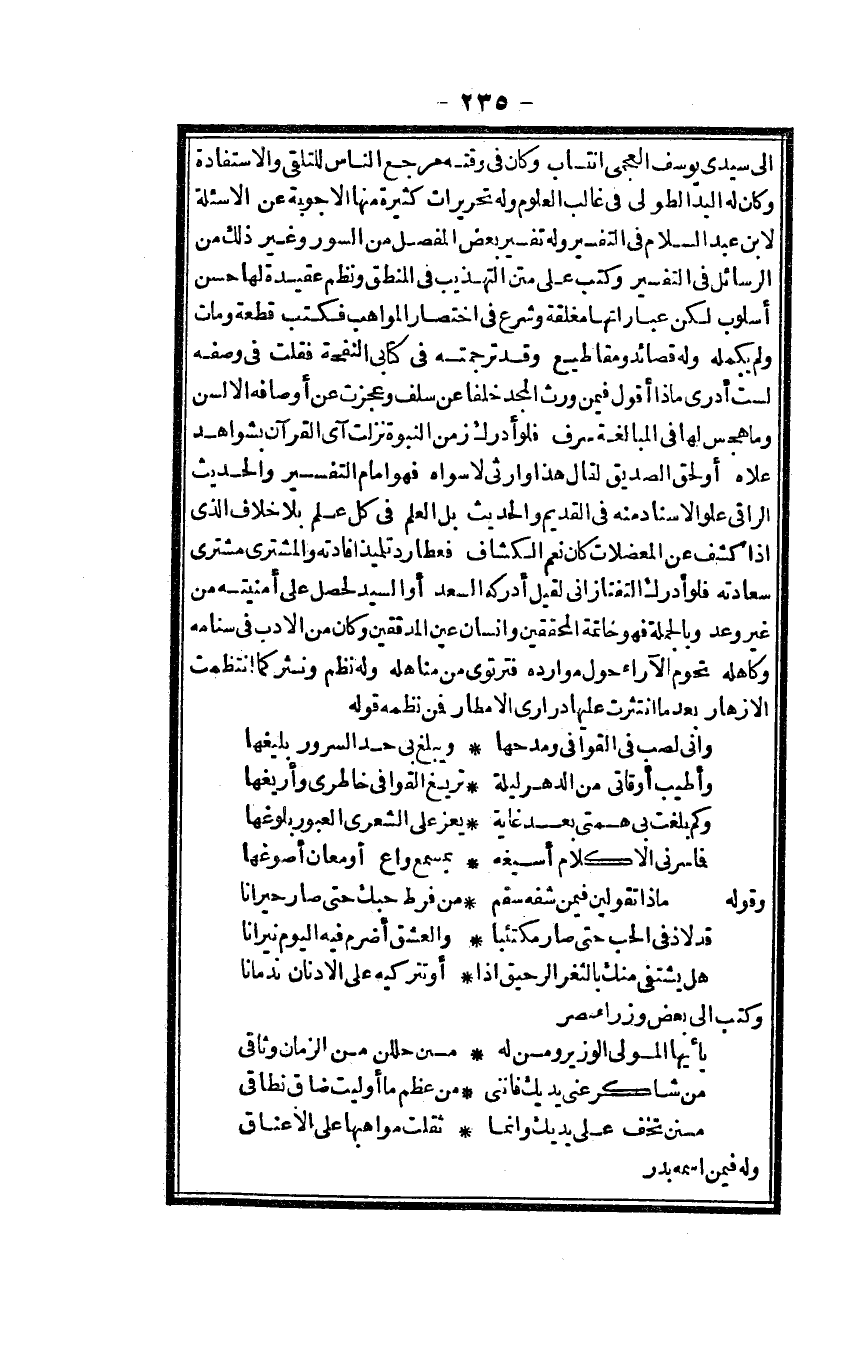 - ٢٣٥ -
الى سيدى يوسف العجمى انتساب وكان فى وقته مرجع الناس للتلقى والاستفادة
وكان له اليد الطولى فى غالب العلوم وله تحريرات كثيرة منها الاجوبة عن الاسئلة
لابن عبد السلام فى التفسير وله تفسير بعض المفصل من السور وغير ذلك من
الرسائل فى التفسير وكتب على متن التهذيب فى المنطق ونظم عقيدة لها حسن
أسلوب لكن عباراتها مغلقة وشرع فى اختصار المواهب فكتب قطعة ومات
ولم يكمله وله قصائد ومقاطيع وقد ترجمته فى كتابى النفحة فقلت فى وصفه
لست أدرى ماذا أقول فيمن ورث المجد خلفا عن سلف وعجزت عن أوصافه الالسن
وما هجس لها فى المبالغة سرف فلو أدرك زمن النبوة نزلت آى القرآن بشواهد
علاه أو لحق الصديق لقال هذا وارثى لا سواه فهو امام التفسير والحديث
الراقى علو الاسناد منه فى القديم والحديث بل العلم فى كل علم بلا خلاف الذى
اذا كشف عن المعضلات كان نعم الكشاف فعطارد تلميذ افادته والمشترى مشترى
سعادته فلو أدرك التفتازانى لقيل أدركه السعد أو السيد لحصل على أمنيته من
غير وعد وبالجملة فهو خاتمة المحققين وانسان عين المدققين وكان من الادب فى سنامه
وكاهله تحوم الآراء حول موارده فترتوى من مناهله وله نظم ونثر كما انتظمت
الازهار بعد ما انتثرت عليها درارى الامطار فمن نظمه قوله
وانى لصب فى القوافى ومدحها * ويبلغ بى حد السرور بليغها
وأطيب أوقاتى من الدهر ليلة * تريغ القوافى خاطرى وأريغها
وكم بلغت بى همتى بعد غاية * يعز على الشعرى العبور بلوغها
فما سرنى الا كلام أسيغه * بمسمع واع أو معان أصوغها
وقوله ماذا تقولين فيمن شفه سقم * من فرط حبك حتى صار حيرانا
قد لاذ فى الحب حتى صار مكتئبا * والعشق أضرم فيه اليوم نيرانا
هل يشتفى منك بالثغر الرحيق اذا * أو تتركيه على الادنان ندمانا
وكتب الى بعض وزراء مصر
يا أيها المولى الوزير ومن له * منن حللن من الزمان وثاقى
من شاكر عنى يديك فاننى * من عظم ما أوليت ضاق نطاقى
منن تخف على يديك وانما * ثقلت مواهبها على الاعناق
وله فيمن اسمه بدر